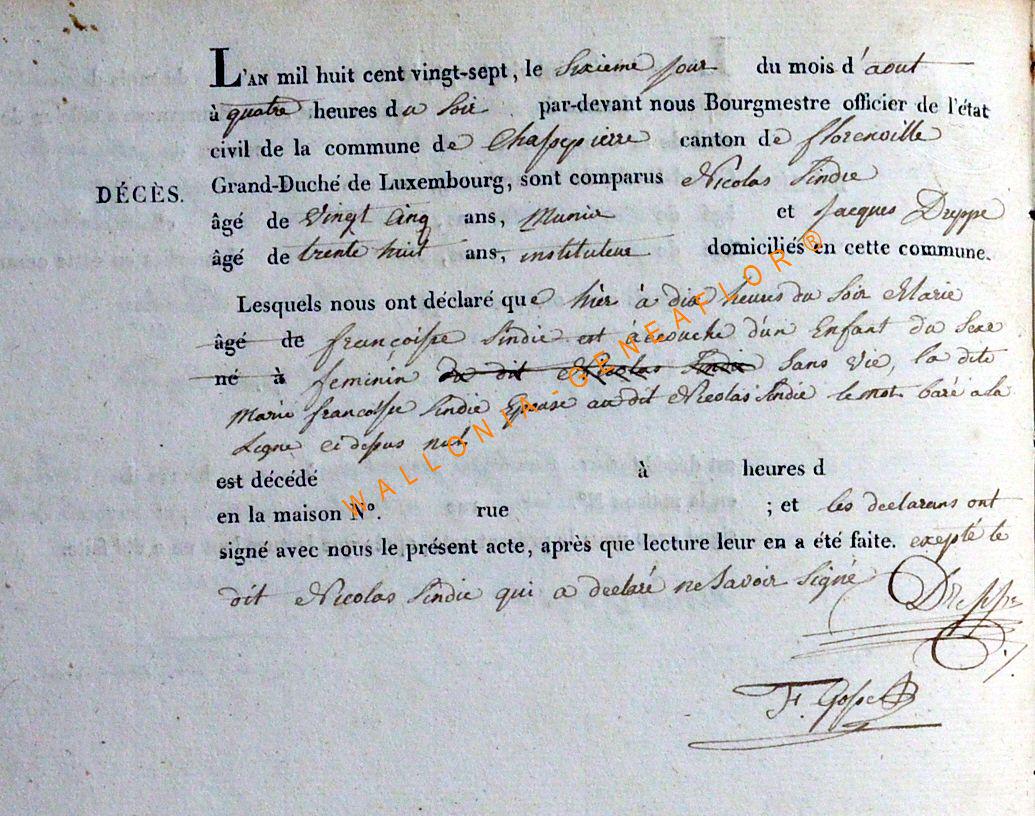 L'AN mil huit cent vingt-sept, le Sixieme jour du mois d'aout
à quatre heures du Soir par-devant nous Bourgmestre officier de l'état
civil de la commune de Chassepierre canton de florenville
DÉCÈS. Grand-Duché de Luxembourg, sont comparus Nicolas Sindic
âgé de Vingt Cinq ans, et Jacques Dreppe
âgé de trente huit ans, instituteur domiciliés en cette commune.
Lesquels nous ont déclaré que hier à dix heures du Soir Marie
âgé de françoisse Sindic est acouche d'un Enfant du Sexe
né à feminin du dit Nicolas Sindic Sans Vie, la dite
Marie françoisse Sindic Epouse au dit Nicolas Sindic le mot baré a la
Ligne ci depus nul
est décédé à heures d
en la maison N°. rue ; et les declarans ont
signé avec nous le présent acte, après que lecture leur en a été faite. exepté le
dit Nicolas Sindic qui a declaré ne Savoir Signé
Dreppe
F. Gosset
WALLONIA-GENEAFLOR ®